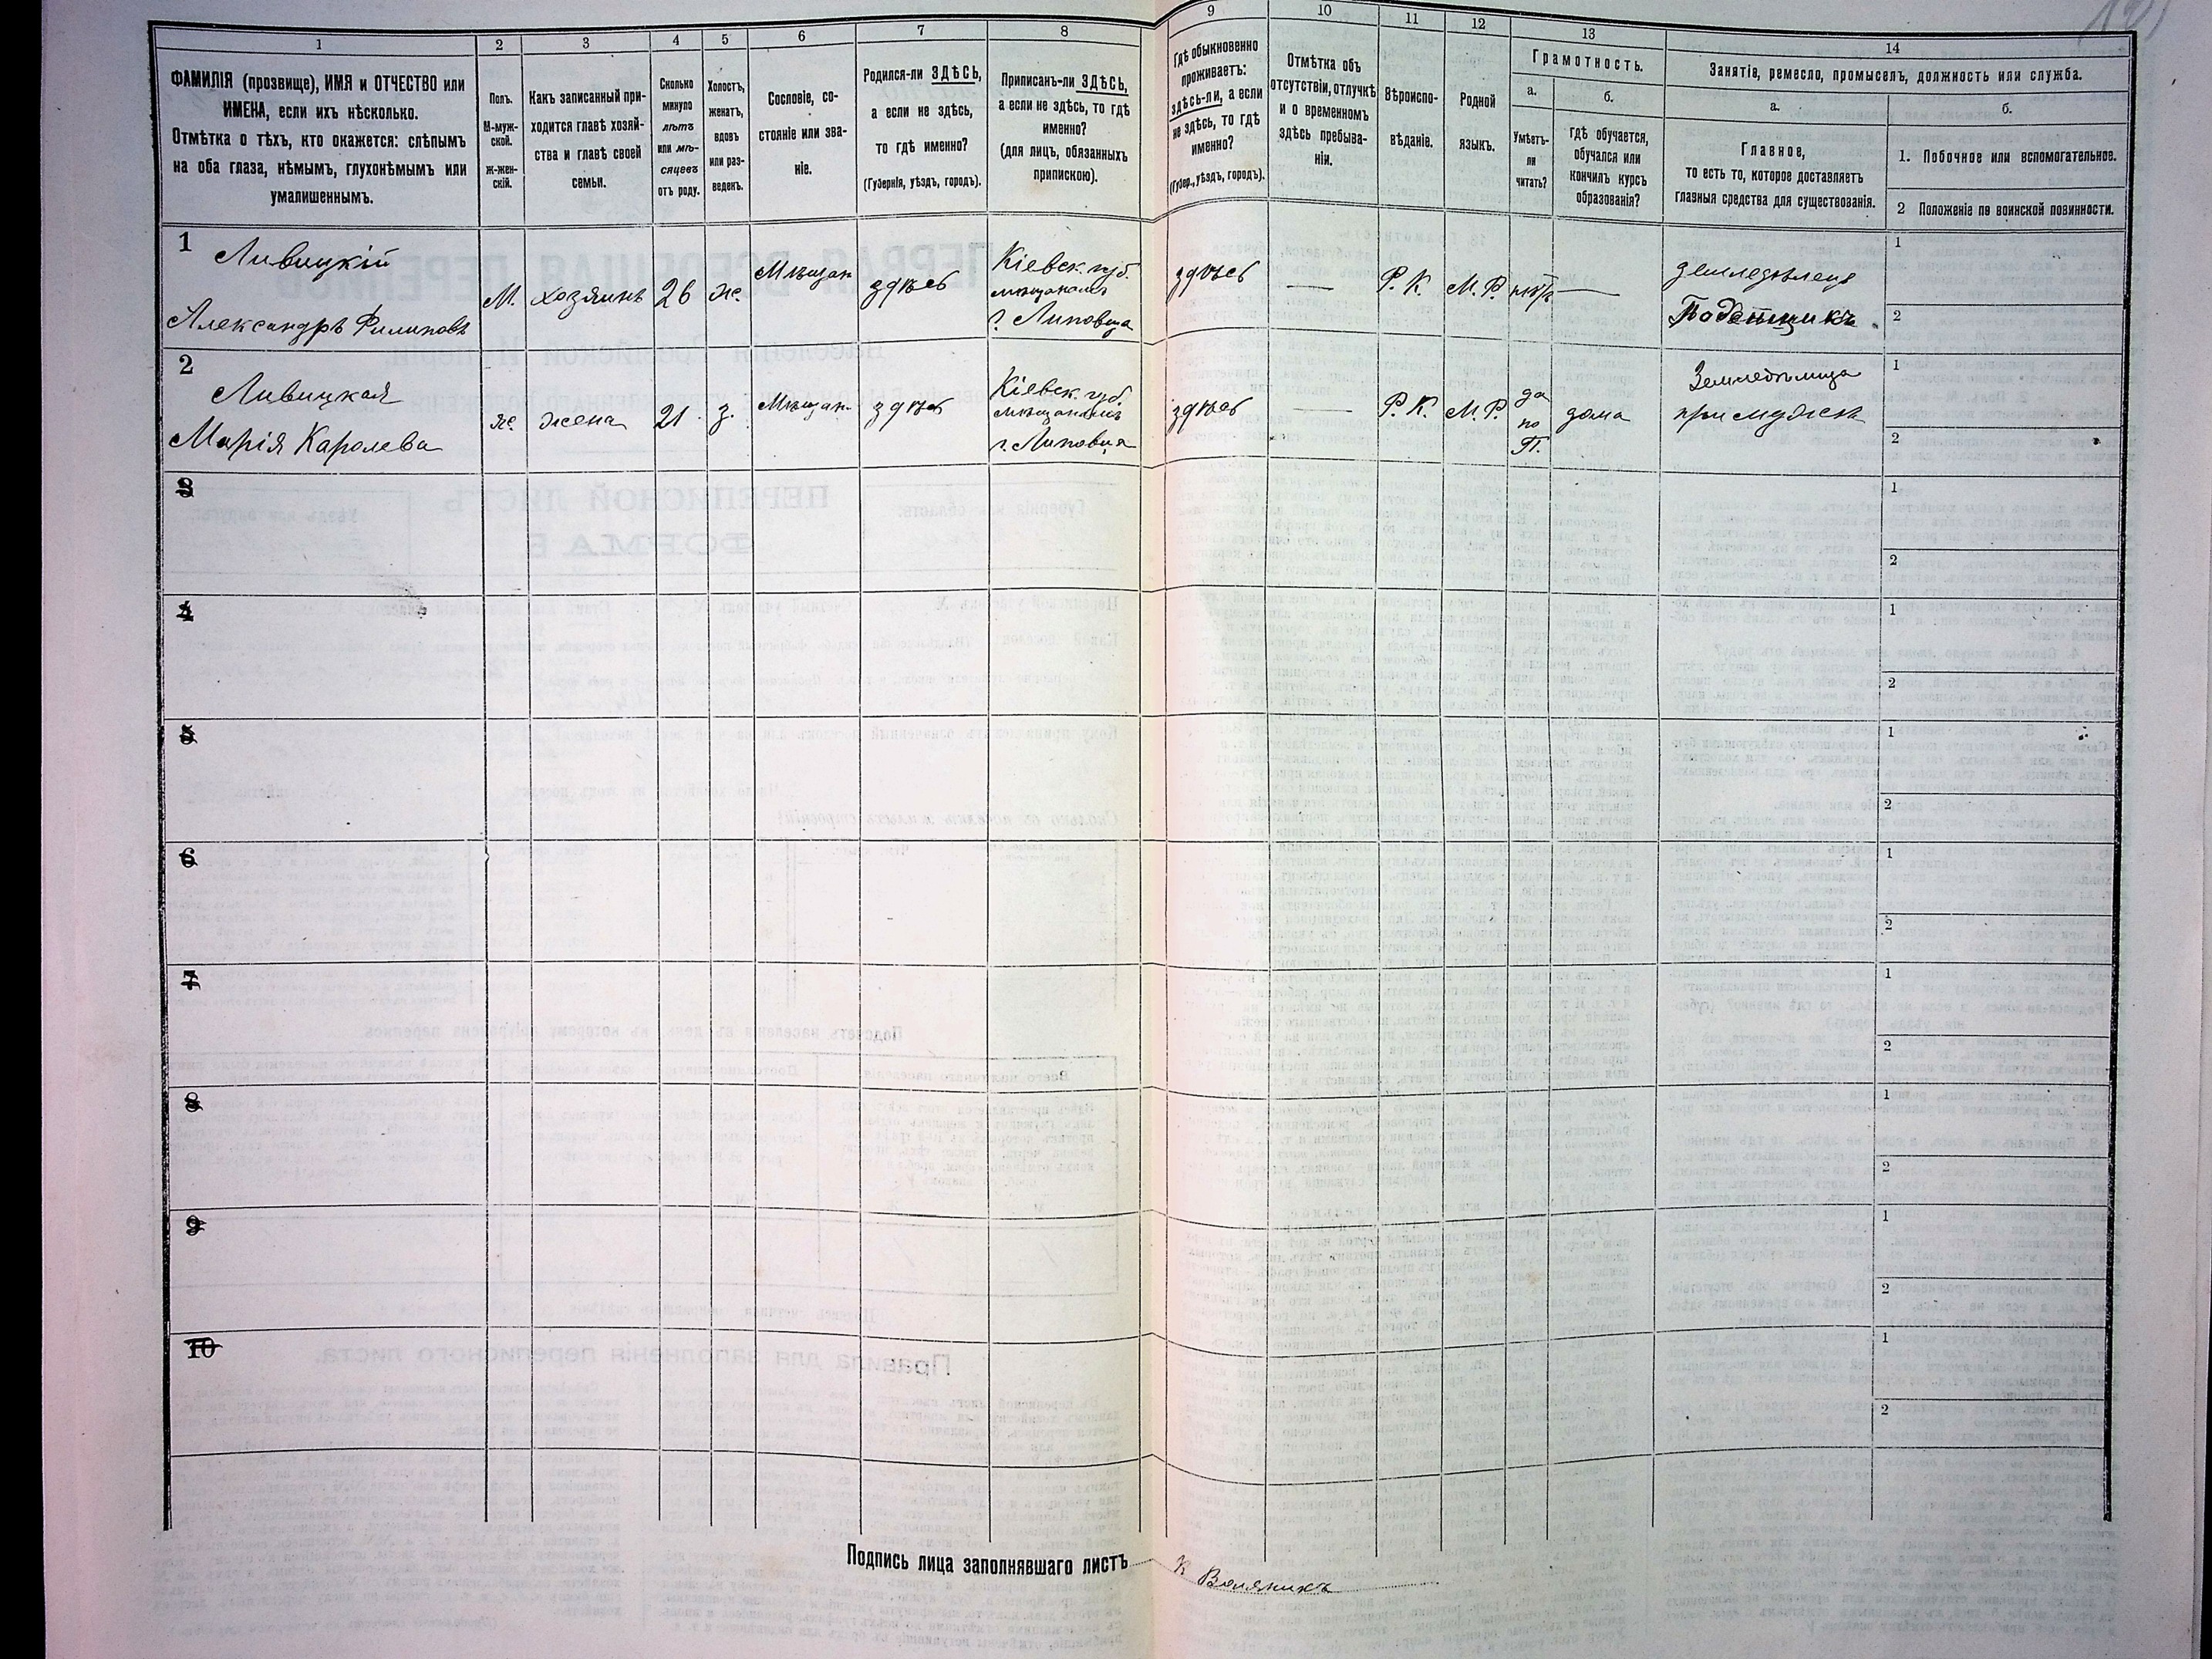 1
2
3
4
5
6
7
8
9
10
11
12
13
14
ФАМИЛІЯ (прозвище), ИМЯ и ОТЧЕСТВО или
ИМЕНА, если ихъ нѣсколько.
Отмѣтка о тѣхъ, кто окажется: слѣпымъ
на оба глаза, нѣмымъ, глухонѣмымъ или
умалишеннымъ.
Полъ.
М-муж-
ской.
Ж-жен-
скій.
Какъ записанный при-
ходится главѣ хозяй-
ства и главѣ своей
семьи.
Сколько
минуло
лѣтъ
или мѣ-
сяцевъ
отъ роду.
Холостъ,
женатъ,
вдовъ
или раз-
веденъ.
Сословіе, со-
стояніе или зва-
ніе.
Родился-ли ЗДѢСЬ,
а если не здѣсь,
то гдѣ именно?
(Губернія, уѣздъ, городъ).
Приписанъ-ли ЗДѢСЬ,
а если не здѣсь, то гдѣ
именно?
(для лицъ, обязанныхъ
припискою).
Гдѣ обыкновенно
проживаетъ:
здѣсь-ли, а если
не здѣсь, то гдѣ
именно?
(Губер., уѣздъ, городъ).
Отмѣтка объ
отсутствіи, отлучкѣ
и о временномъ
здѣсь пребыва-
ніи.
Вѣроиспо-
вѣданіе.
Родной
языкъ.
Грамотность.
а.
Умѣетъ-
ли
читать?
б.
гдѣ обучается,
обучался или
кончилъ курсъ
образованія?
Занятіе, ремесло, промыселъ, должность или служба.
а.
Главное,
то есть то, которое доставляетъ
главныя средства для существованія.
б.
1. Побочное или вспомогательное.
2 Положеніе по воинской повинности.
1
Ливицкій
Александръ Филиповъ
М.
хозяинъ
26
ж.
Мѣщан
здѣсь
Кіевск. губ.
г. Липовца
здѣсь
—
Р. К.
М. Р.
нѣтъ
—
земледѣлецъ
Поденщикъ
1
2
2
Ливицкая
Марія Каролева
ж.
жена
21
з.
Мѣщан.
здѣсь
Кіевск. губ.
г. Липовца
здѣсь
—
Р. К.
М. Р.
да
по
П.
дома
при мужѣ
1
2
3
1
2
4
1
2
5
1
2
6
1
2
7
1
2
8
1
2
9
1
2
10
1
2
Подпись лица заполнявшаго листъ